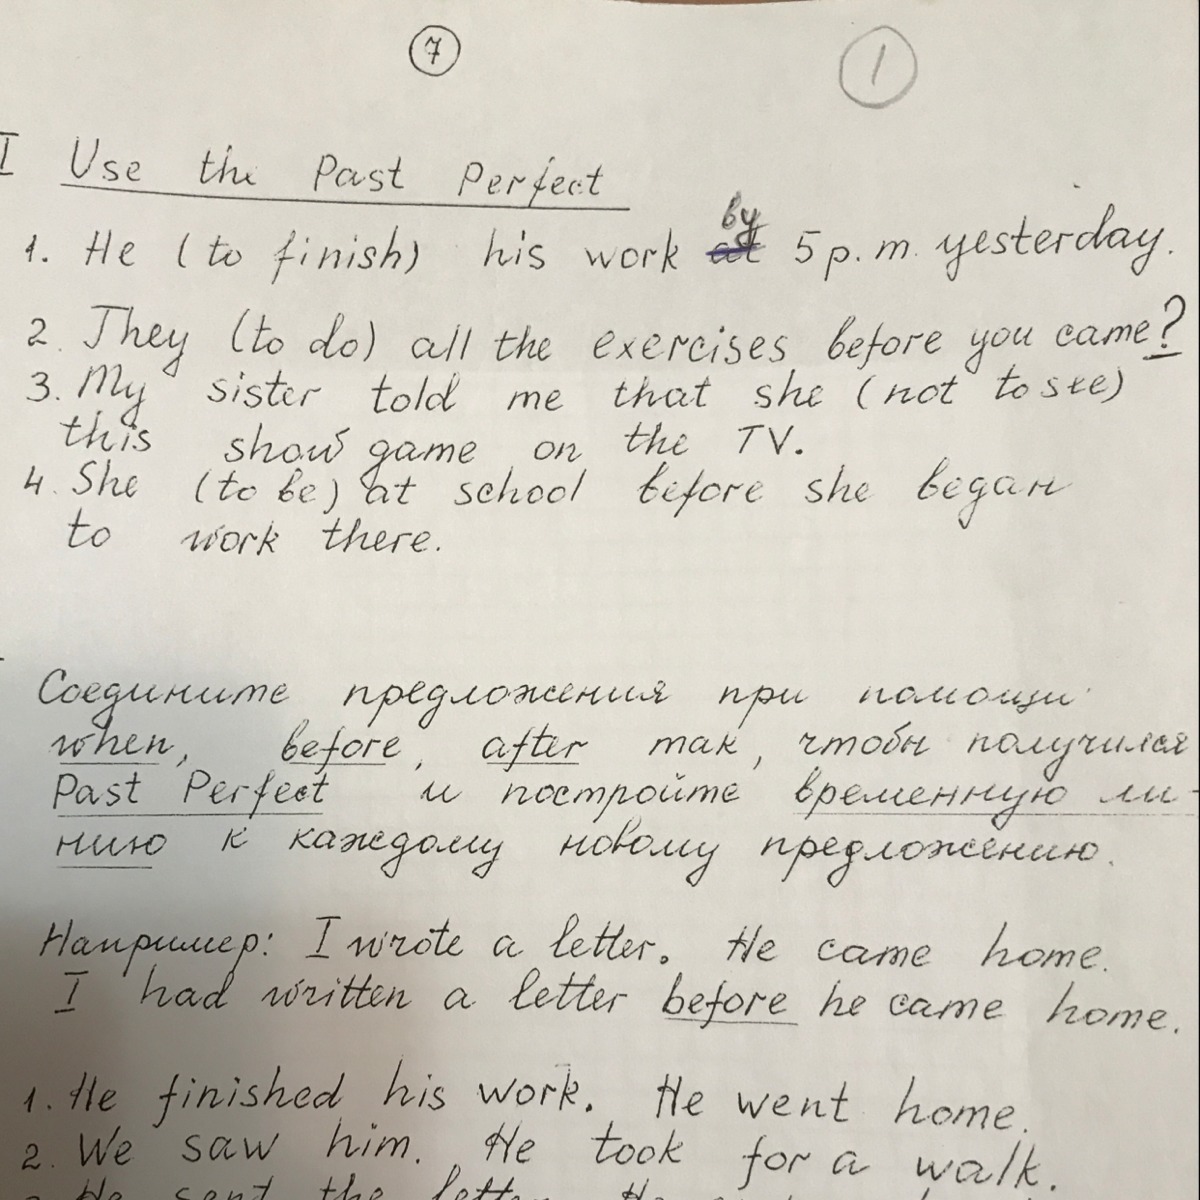 7
1
I Use the Past Perfect
by
1. He (to finish) his work at 5 p.m. yesterday.
2. They (to do) all the exercises before you came?
3. My sister told me that she (not to see)
this show game on the TV.
4. She (to be) at school before she began
to work there.
Соедините предложения при помощи
when, before, after так, чтобы получился
Past Perfect и постройте временную ли-
нию к каждому новому предложению.
Например: I wrote a letter. He came home.
I had written a letter before he came home.
1. He finished his work. He went home.
2. We saw him. He took for a walk.
3. He sent the letter. He